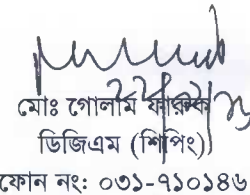 মোঃ গোলাম ফারুক
ডিজিএম (শিপিং)
ফোন নং: ০৩১-৭১০১৪৮